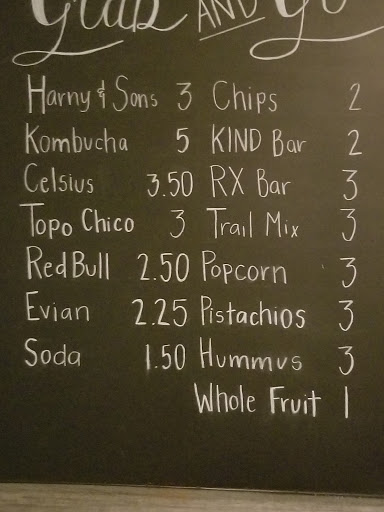 Grab AND Go
Harny & Sons 3 Chips 2
Kombucha 5 KIND Bar 2
Celsius 3.50 RX Bar 3
Topo Chico 3 Trail Mix 3
Red Bull 2.50 Popcorn 3
Evian 2.25 Pistachios 3
Soda 1.50 Hummus 3
Whole Fruit 1